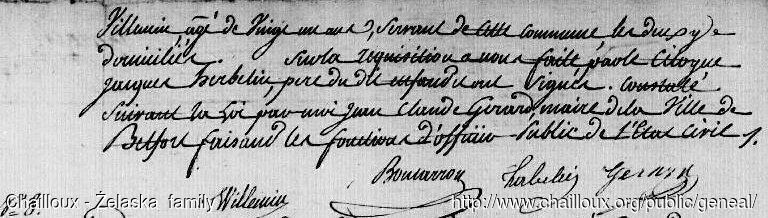 Villemin, agé de Vingt un ans, servant de cette commune les deux y
domiciliés. sur la requisition a nous faite par le Citoyen
Jacques herbelin, pere du dit enfand et ont Signés. Constaté
Suivant la Loi par moi Jean Claude Gérard maire de la Ville de
Belfort faisand les fonctions d'officier Public de l'Etat Civil
Bontarron herbelin Gerard
Chailloux - Żelaska family Willemin http://www.chailloux.org/public/geneal/